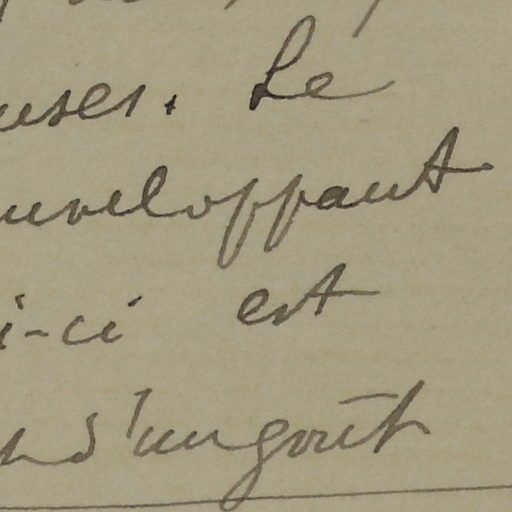 uses. Le
nveloppant
i-ci est
d'un goût